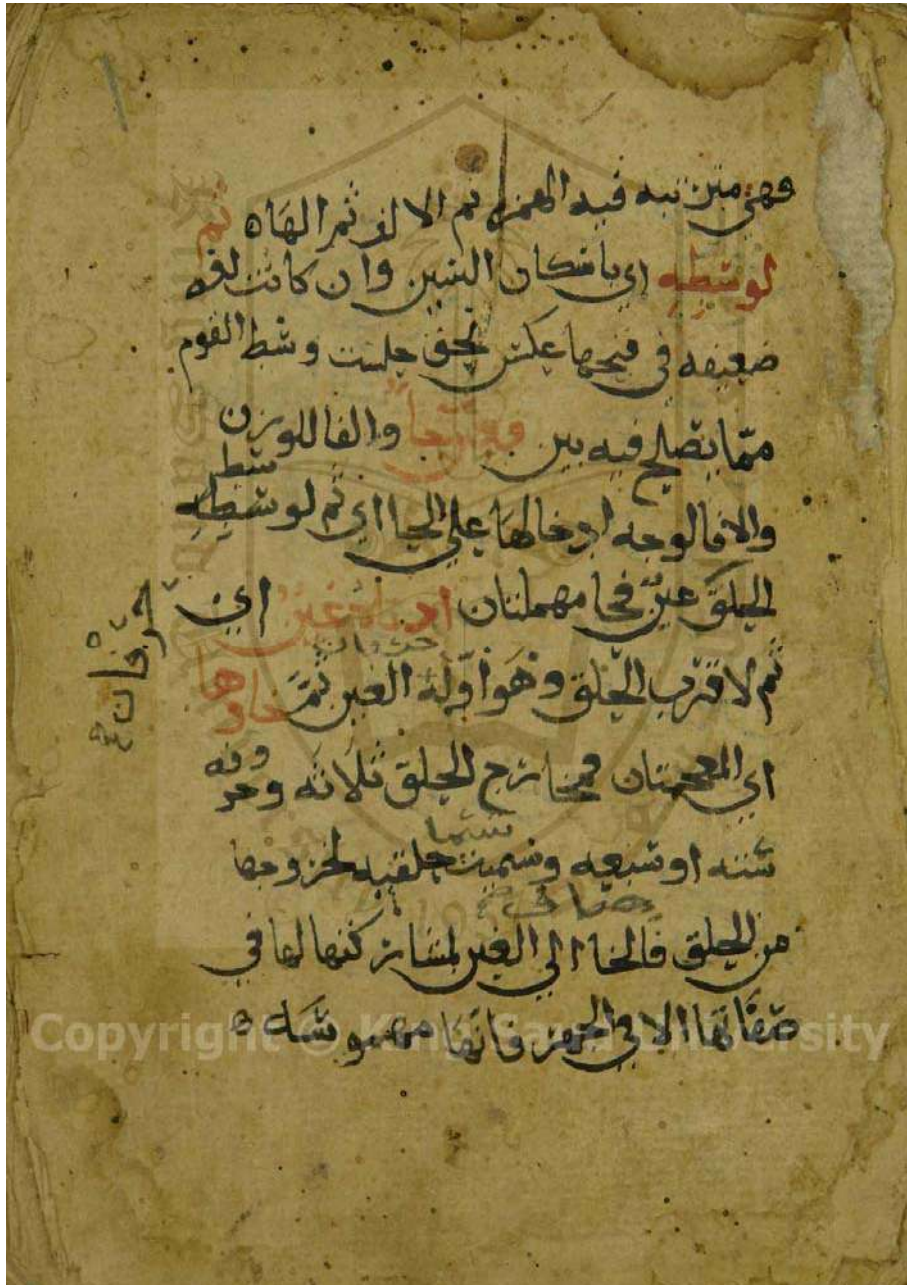 فهي مترتبه فيه الهمزه ثم الالف ثم الهاه ثم
لوسطه اي باسكان السين وان كانت لغه
ضعيفه في فتحها عكس نحو جلست وسط القوم
مما يصلح فيه بين والفا للوزن
والافالوجه ادخالها علي الحا اي ثم لوسطه
الحلق عين فحا مهملتان ادناه غين اي
حرفان
ثم لاقرب الحلق وهو اوله الغين ثم خاوها
اي المعجمتان فمخارج الحلق ثلاثه وحروفه
سته او سبعه وسميت حلقيه لخروجها
من الحلق فالخا الي الغين لمشاركتها لها في
صفاتها الا في الجهر فانها مهموسه ه
حرفان
Copyright © King Saud University